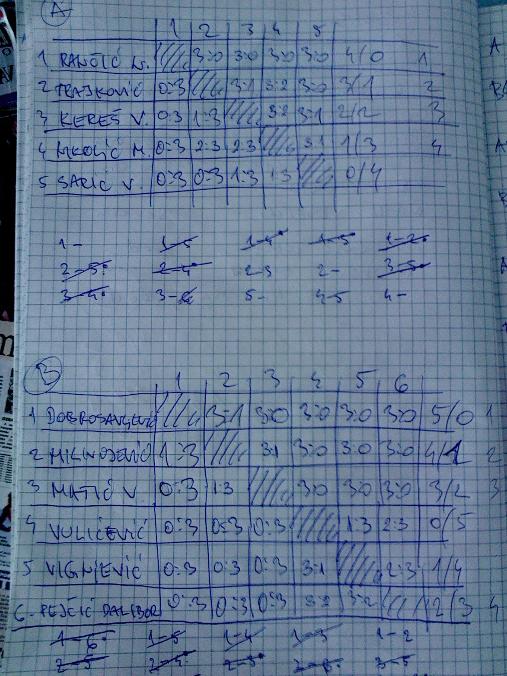 A
1 2 3 4 5
1 RANČIĆ 3:0 3:0 3:0 3:0 4/0 1
2 TRAJKOVIĆ 0:3 3:1 3:2 3:0 3/1 2
3 KEREŠ V. 0:3 1:3 3:2 3:1 2/2 3
4 NIKOLIĆ M. 0:3 2:3 2:3 3:1 1/3 4
5 SARIĆ V. 0:3 0:3 1:3 1:3 0/4
1- 1-5 1-4 1-3 1-2
2-5 2-4 2-3 2- 3-5
3-4 3- 5- 4-5 4-
B
1 2 3 4 5 6
1 3:1 3:0 3:0 3:0 3:0 5/0 1
2 1:3 3:1 3:0 3:0 3:0 4/1 2
3 MATIĆ V. 0:3 1:3 3:0 3:0 3:0 3/2 3
4 VULIĆEVIĆ 0:3 0:3 0:3 1:3 2:3 0/5
5 VIGNJEVIĆ 0:3 0:3 0:3 3:1 2:3 1/4
6. PEJČIĆ DALIBOR 0:3 0:3 0:3 3:2 3:2 2/3 4
1-6 1-5 1-4 1-3 1-2
2-5 2-4 3-5